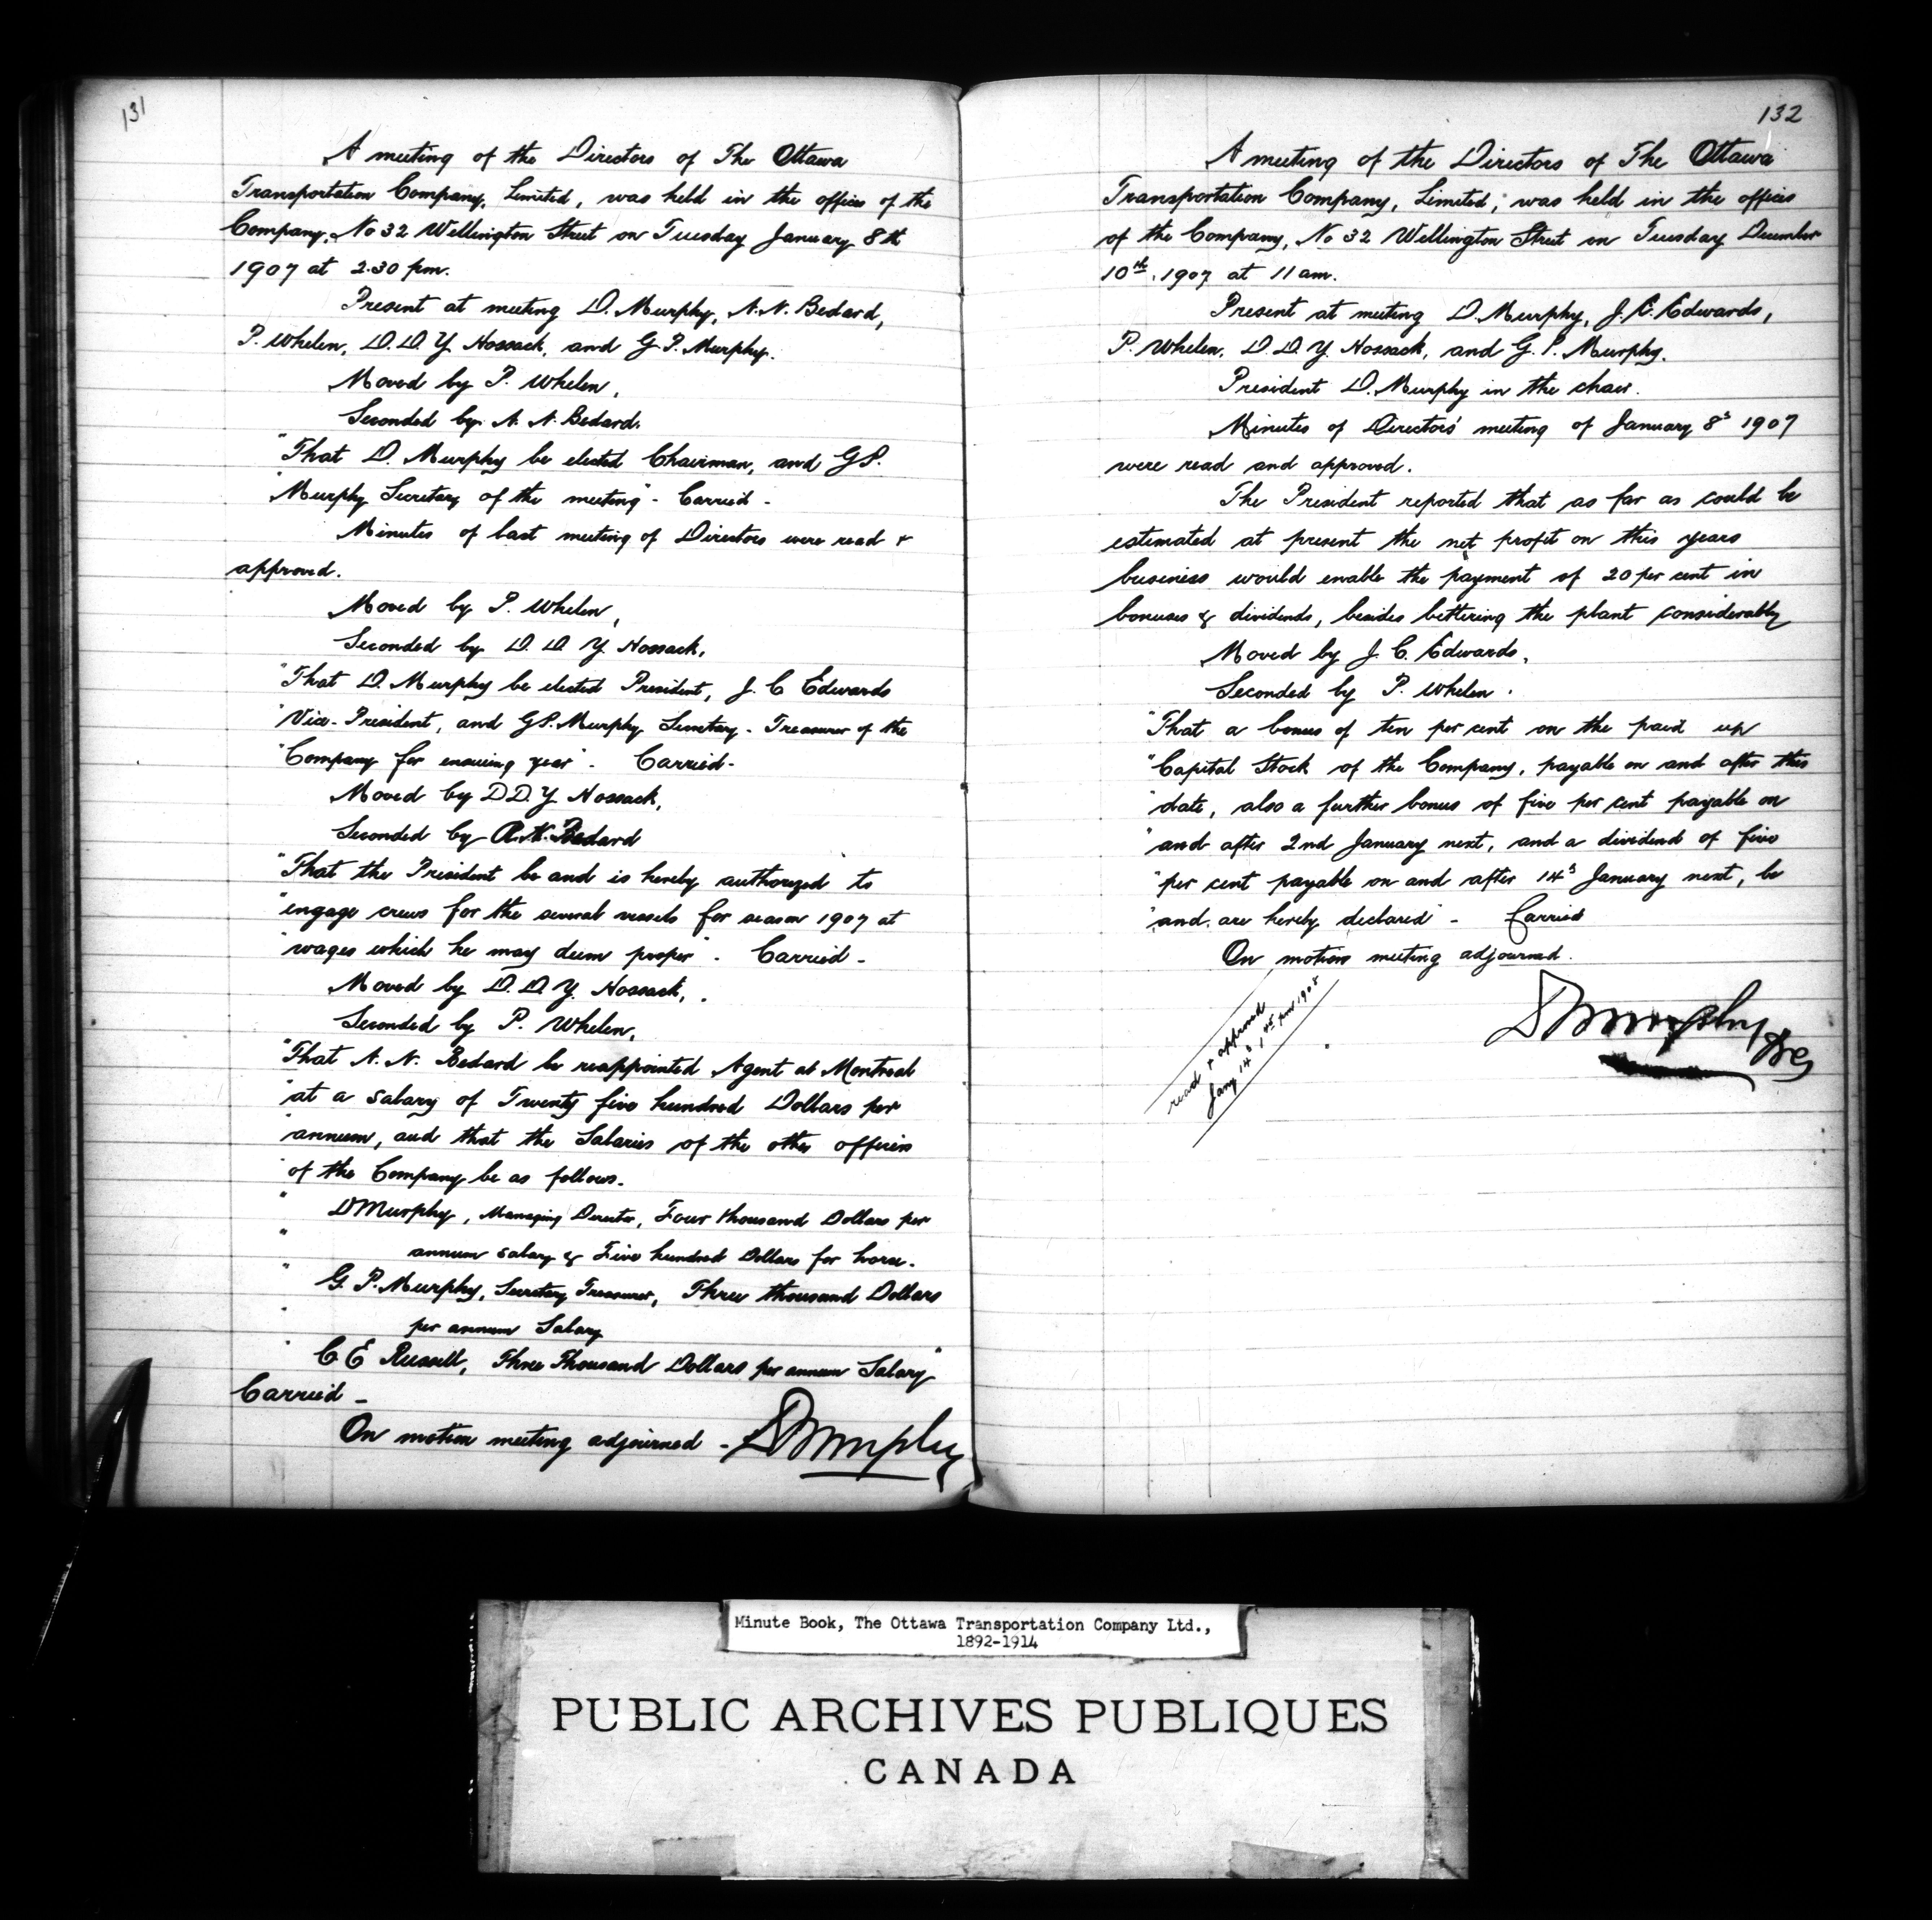 131
A meeting of the Directors of The Ottawa
Transportation Company, Limited, was held in the offices of the
Company, No 32 Wellington Street on Tuesday January 8th
1907 at 2.30 pm.
Present at meeting D. Murphy, N. N. Bedard,
P. Whelen, D. D. Y Hossack, and G P. Murphy.
Moved by P. Whelen,
Seconded by N. N. Bedard.
"That D. Murphy be elected Chairman, and G P.
"Murphy Secretary of the meeting" - Carried -
Minutes of last meeting of Directors were read +
approved.
Moved by P. Whelen,
Seconded by D. D Y. Hossack.
"That D. Murphy be elected President, J. C Edwards
"Vice-President, and G P. Murphy Secretary-Treasurer of the
"Company for ensuing year" - Carried -
Moved by D D. Y Hossack,
Seconded by A. N. Bedard
"That the President be and is hereby authorized to
"engage crews for the several vessels for season 1907 at
"wages which he may deem proper" - Carried -
Moved by D. D. Y. Hossack,
Seconded by P. Whelen,
"That N. N. Bedard be reappointed Agent at Montreal
"at a salary of Twenty five hundred Dollars per
"annum, and that the Salaries of the other officers
"of the Company be as follows.
" D Murphy, Managing Director, Four thousand Dollars per
" annum salary & Five hundred Dollars for horse.
" G. P. Murphy, Secretary Treasurer, Three thousand Dollars
" per annum Salary
" C E Russell, Three Thousand Dollars per annum Salary"
Carried -
On motion meeting adjourned - D Murphy
132
A meeting of the Directors of The Ottawa
Transportation Company, Limited, was held in the offices
of the Company, No 32 Wellington Street on Tuesday December
10th, 1907 at 11 am.
Present at meeting D. Murphy, J. C. Edwards,
P. Whelen, D. D. Y. Hossack, and G. P. Murphy.
President D. Murphy in the chair.
Minutes of Directors' meeting of January 8th 1907
were read and approved.
The President reported that as far as could be
estimated at present the net profit on this years
business would enable the payment of 20 per cent in
bonuses & dividends, besides bettering the plant considerably
Moved by J. C. Edwards,
Seconded by P. Whelen.
"That a bonus of ten per cent on the paid up
"Capital Stock of the Company, payable on and after this
"date, also a further bonus of five per cent payable on
"and after 2nd January next, and a dividend of five
"per cent payable on and after 14th January next, be
"and are hereby declared" - Carried
On motion meeting adjourned.
D Murphy Pres
read + approved
Jany 14th, 1.45 pm 1908
Minute Book, The Ottawa Transportation Company Ltd.,
1892-1914
PUBLIC ARCHIVES PUBLIQUES
CANADA